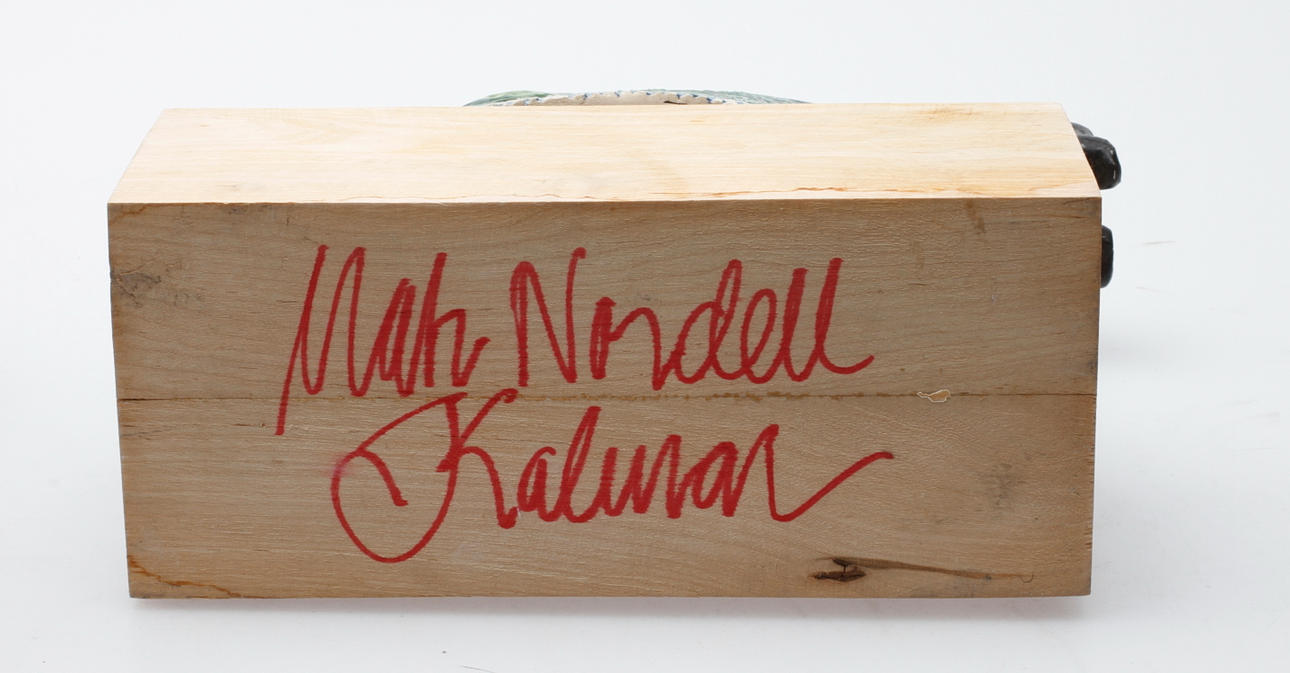 Mats Nordell
Kalmar